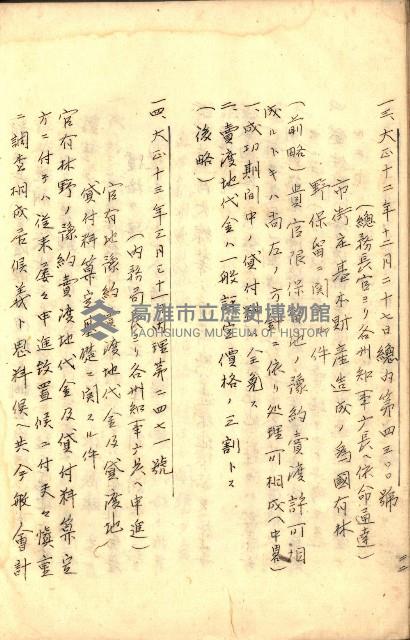 一三、大正十二年十二月二十七日總內第四三〇〇號
(總務長官ヨリ各州知事廳長ヘ依命通達)
市街庄基本財產造成ノ為國有林
野保留ニ関スル件
(前略)貴官限保留地ノ豫約賣渡許可相
成ルトキハ尚左ノ方針ニ依リ処理可相成ヘ(中略)
一、成功期間中ノ貸付料ハ全免ス
二、賣渡地代金ハ一般評定價格ノ三割トス
(後略)
一四、大正十三年三月三十一日地理第二四七一號
(內務局長ヨリ各州知事廳長ヘ申進)
官有地豫約賣渡地代金及貸渡地
貸付料算定基礎ニ関スル件
官有林野ノ豫約賣渡地代金及貸付料算定
方ニ付テハ從来屡々申進置候ニ付夫々慎重
ニ調査相成居候義ト思料候ヘ共今般會計
高雄市立歷史博物館
KAOHSIUNG MUSEUM OF HISTORY